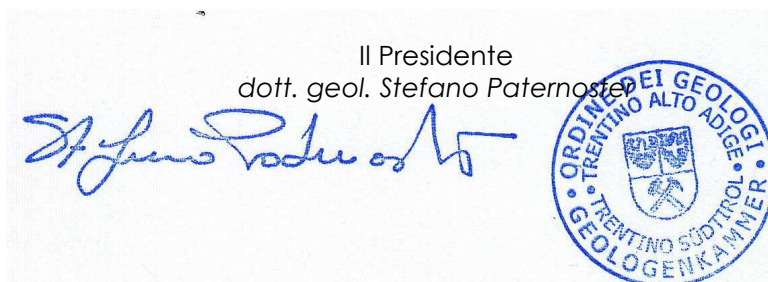 Il Presidente
dott. geol. Stefano Paternoster
Stefano Paternoster
ORDINE DEI GEOLOGI
TRENTINO ALTO ADIGE
TRENTINO SÜDTIROL
GEOLOGENKAMMER